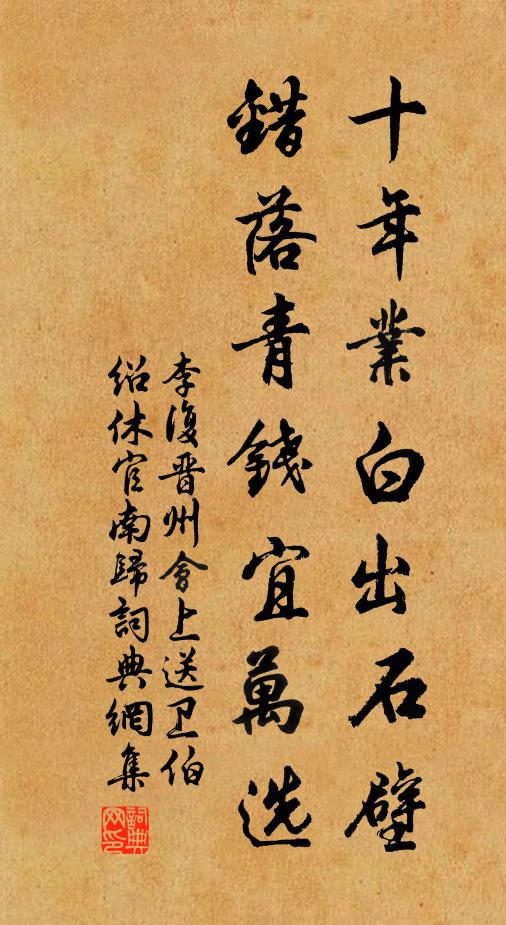 十年業白出石壁
錯落青錢宜萬选
李復晋州會上送卫伯
紹休官南歸詞典網集
詞典
网印